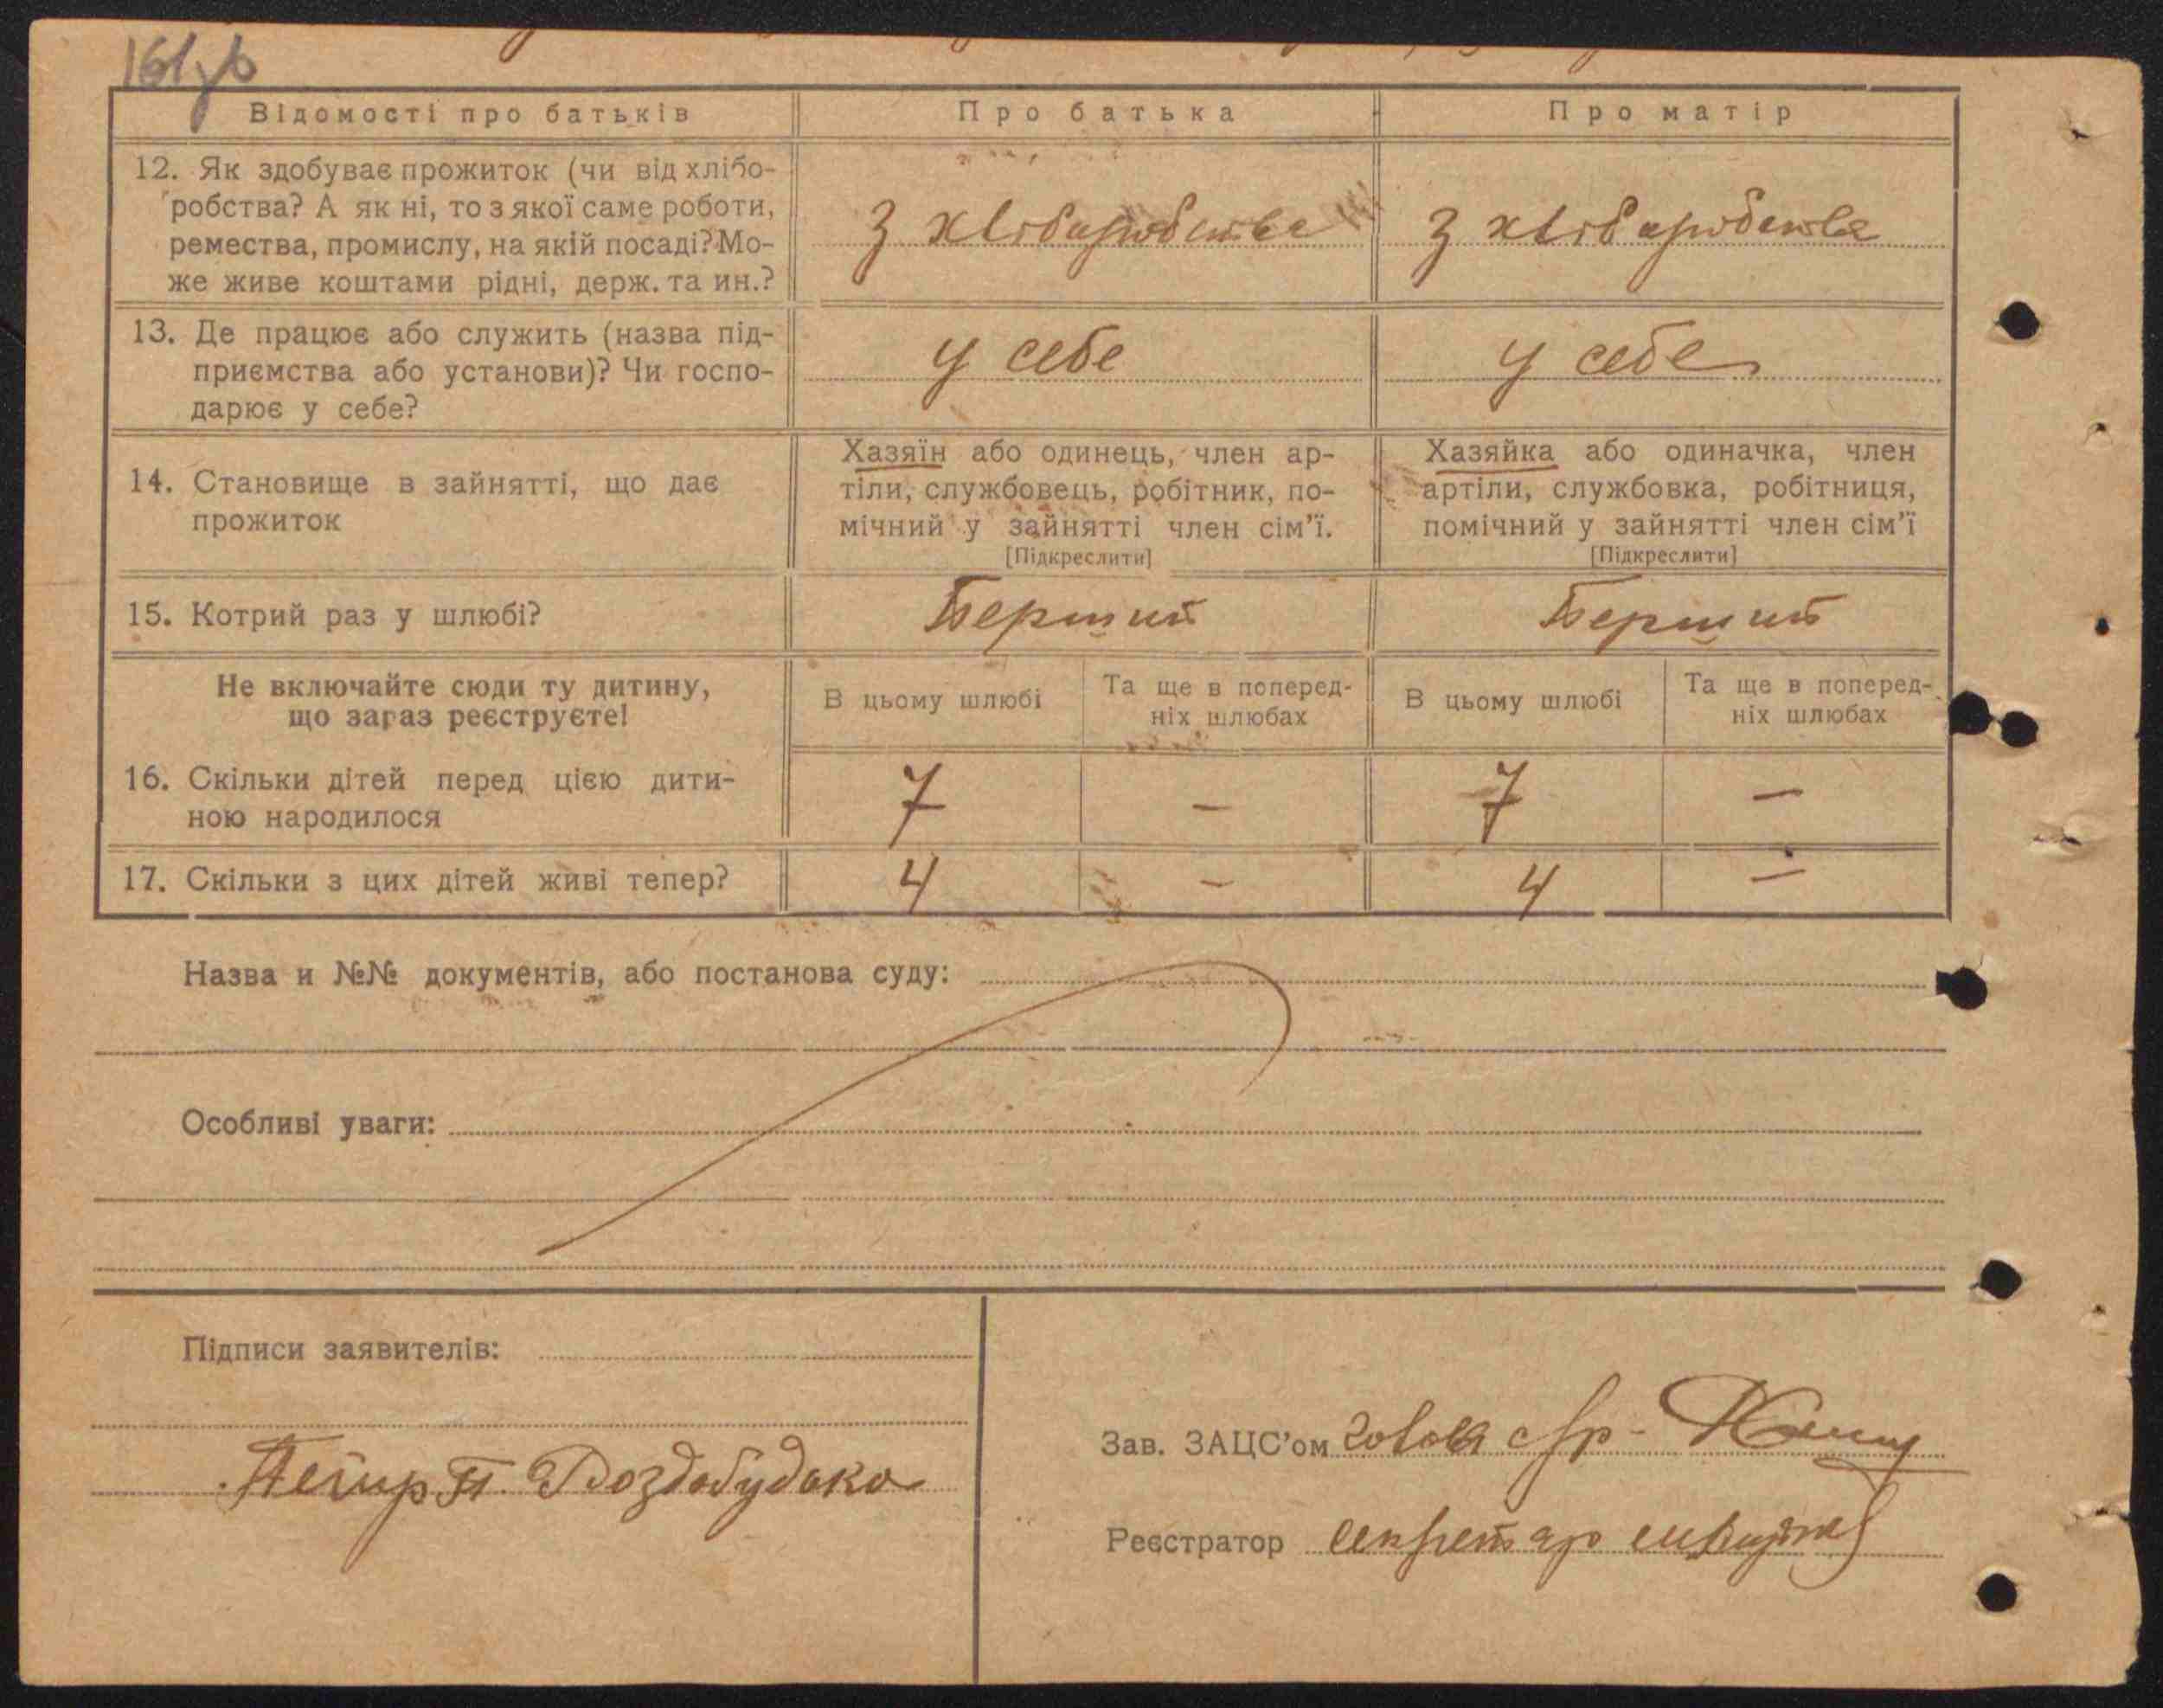 Відомості про батьків Про батька Про матір
12. Як здобуває прожиток (чи від хлібо-
робства? А як ні, то з якої саме роботи,
ремества, промислу, на якій посаді? Мо-
же живе коштами рідні, держ. та ин.?
З хлібаробства З хлібаробства
13. Де працює або служить (назва під-
приємства або установи)? Чи госпо-
дарює у себе?
у себе у себе
14. Становище в зайнятті, що дає
прожиток
Хазяїн або одинець, член ар-
тіли, службовець, робітник, по-
мічний у зайнятті член сім'ї.
[Підкреслити]
Хазяйка або одиначка, член
артіли, службовка, робітниця,
помічний у зайнятті член сім'ї
[Підкреслити]
15. Котрий раз у шлюбі? Перший Перший
Не включайте сюди ту дитину,
що зараз реєструєте!
В цьому шлюбі
Та ще в поперед-
ніх шлюбах
В цьому шлюбі
Та ще в поперед-
ніх шлюбах
16. Скільки дітей перед цією дити-
ною народилося
7 — 7 —
17. Скільки з цих дітей живі тепер? 4 — 4 —
Назва и №№ документів, або постанова суду:
Особливі уваги:
Підписи заявителів:
Петр П. Роздабудько
Зав. ЗАЦС'ом голова с/р-
Реєстратор секретар